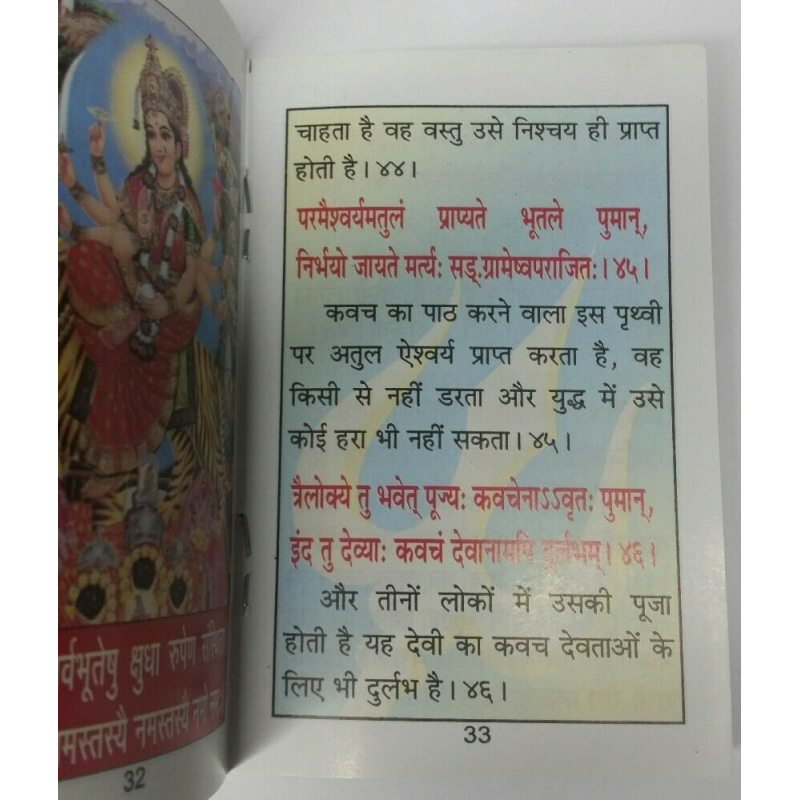 क्षुधा रुपेण
नमस्तस्यै नमो
32
चाहता है वह वस्तु उसे निश्चय ही प्राप्त
होती है। ४४।
परमैश्वर्यमतुलं प्राप्यते भूतले पुमान्,
निर्भयो जायते मर्त्यः सड्.ग्रामेष्वपराजितः। ४५।
कवच का पाठ करने वाला इस पृथ्वी
पर अतुल ऐश्वर्य प्राप्त करता है, वह
किसी से नहीं डरता और युद्ध में उसे
कोई हरा भी नहीं सकता। ४५।
त्रैलोक्ये तु भवेत् पूज्यः कवचेनाऽऽवृतः पुमान्,
इंद तु देव्याः कवचं देवानामपि दुर्लभम्। ४६।
और तीनों लोकों में उसकी पूजा
होती है यह देवी का कवच देवताओं के
लिए भी दुर्लभ है। ४६।
33